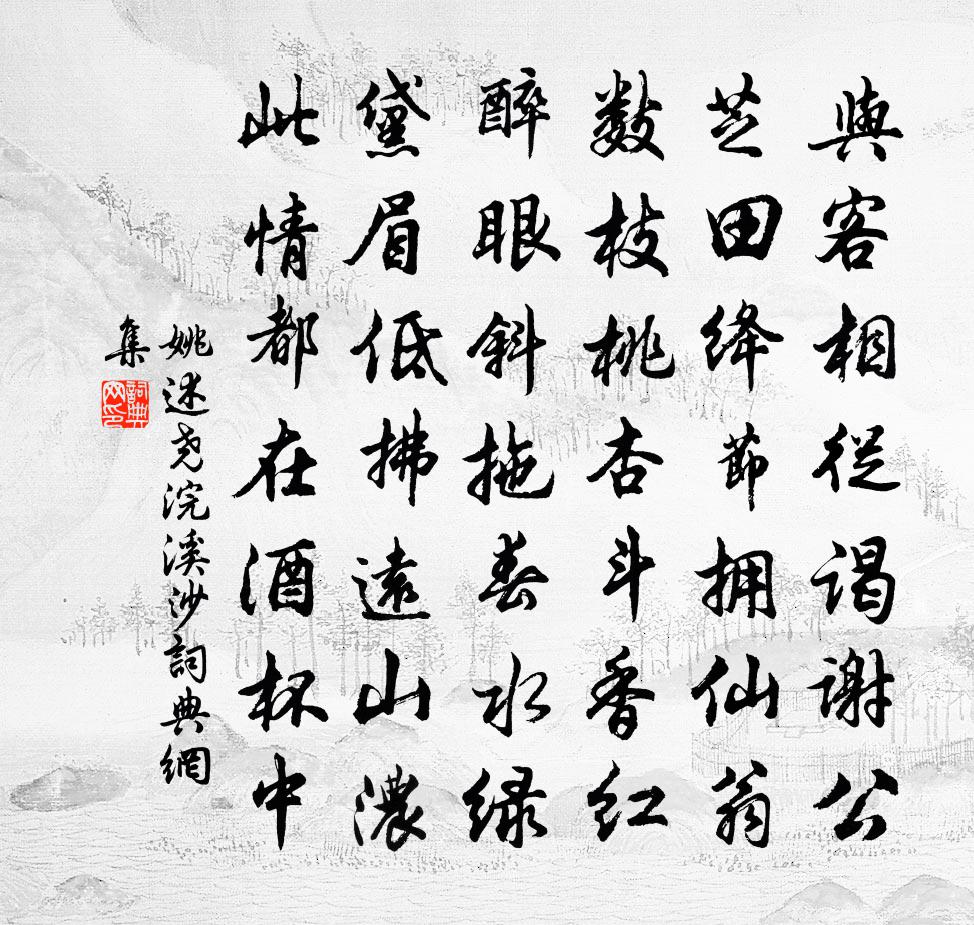 與客相從謁謝公
芝田绛節拥仙翁
數枝桃杏斗香红
醉眼斜拖春水绿
黛眉低拂遠山濃
此情都在酒杯中
姚述尧浣溪沙詞典網
集
詞典網印